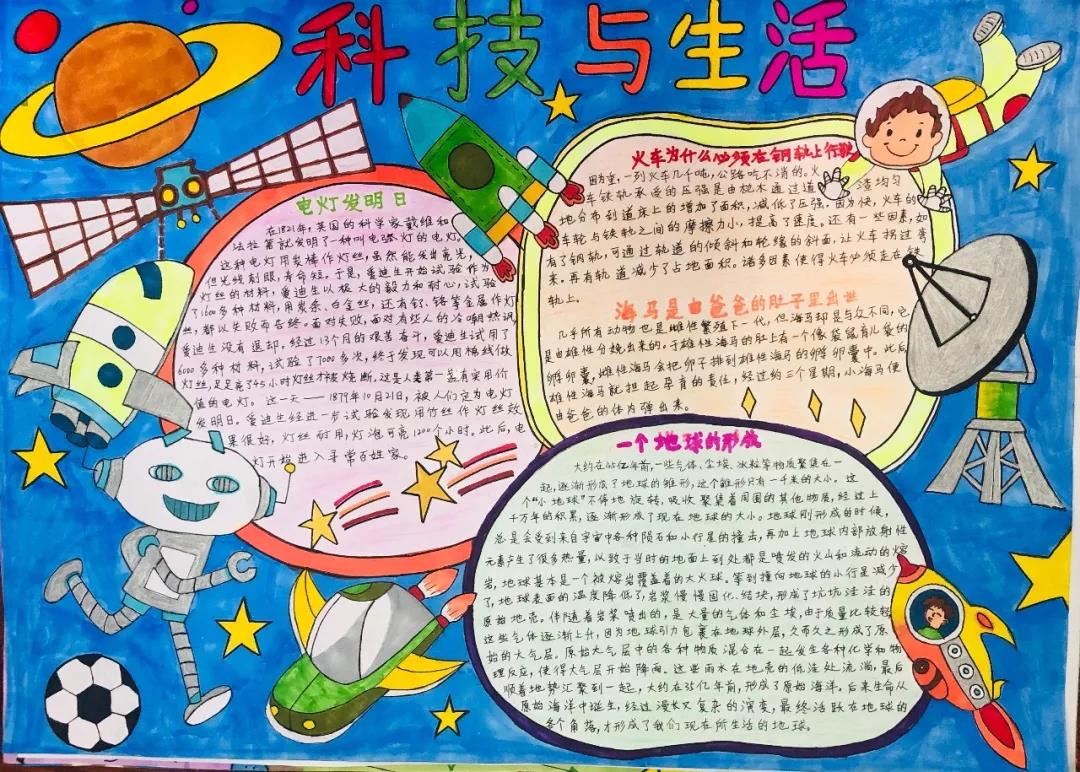 科技与生活
电灯发明日
在1821年,英国的科学家戴维和
法拉第就发明了一种叫电弧灯的电灯。
这种电灯用炭棒作灯丝,虽然能发出亮光,
但光线刺眼,寿命短。于是,爱迪生开始试验作为
灯丝的材料,爱迪生以极大的毅力和耐心,试验
了1600多种材料,用炭条、白金丝,还有钌、铬等金属作灯
丝,都以失败而告终。面对失败,面对有些人的冷嘲热讽
爱迪生没有退却。经过13个月的艰苦奋斗,爱迪生试用了
6000多种材料,试验了7000多次,终于发现可以用棉线做
灯丝,足足亮了45小时灯丝才被烧断。这是人类第一盏有实用价
值的电灯。这一天——1879年10月21日,被人们定为电灯
发明日。爱迪生经进一步试验发现用竹丝作灯丝效
果很好,灯丝耐用,灯泡可亮1200个小时。此后,电
灯开始进入寻常百姓家。
火车为什么必须在钢轨上行驶
因为重,一列火车几千吨,公路吃不消的。火
车铁轨承受的压强是由枕木通过道渣均匀
地分布到道床上的增加了面积,减低了压强。因为快,火车的
车轮与铁轨之间的摩擦力小,提高了速度。还有一些因素,如
有了钢轨,可通过轨道的倾斜和轮缘的斜面,让火车拐过弯
来。再有轨道减少了占地面积。诸多因素使得火车必须走在铁
轨上。
海马是由爸爸的肚子里出世
几乎所有动物也是雌性繁殖下一代,但海马却是与众不同,它
是由雄性分娩出来的。于雄性海马的肚上有一个像袋鼠育儿袋的
孵卵囊,雌性海马会把卵子排到雄性海马的孵卵囊中。此后
雄性海马就担起孕育的责任,经过约三个星期,小海马便
由爸爸的体内弹出来。
一个地球的形成
大约在46亿年前,一些气体、尘埃、冰粒等物质聚集在一
起,逐渐形成了地球的雏形,这个雏形只有一千米的大小。这
个“小地球”不停地旋转,吸收聚集着周围的其他物质,经过上
千万年的积累,逐渐形成了现在地球的大小。地球刚形成的时候,
总是会受到来自宇宙中各种陨石和小行星的撞击,再加上地球内部放射性
元素产生了很多热量,以致于当时的地面上到处都是喷发的火山和流动的熔
岩,地球基本是一个被熔岩覆盖着的大火球。等到撞向地球的小行星减少
了,地球表面的温度降低了,岩浆慢慢固化、结块,形成了坑坑洼洼的
原始地壳。伴随着岩浆喷出的,是大量的气体和尘埃,由于质量比较轻
这些气体逐渐上升,因为地球引力包裹在地球外层,久而久之形成了原
始的大气层。原始大气层中的各种物质混合在一起发生各种化学和物
理反应,使得大气层开始降雨。这些雨水在地壳的低洼处流淌,最后
顺着地势汇聚到一起,大约在35亿年前,形成了原始海洋。后来生命从
原始海洋中诞生,经过漫长又复杂的演变,最终活跃在地球的
各个角落,才形成了我们现在所生活的地球。